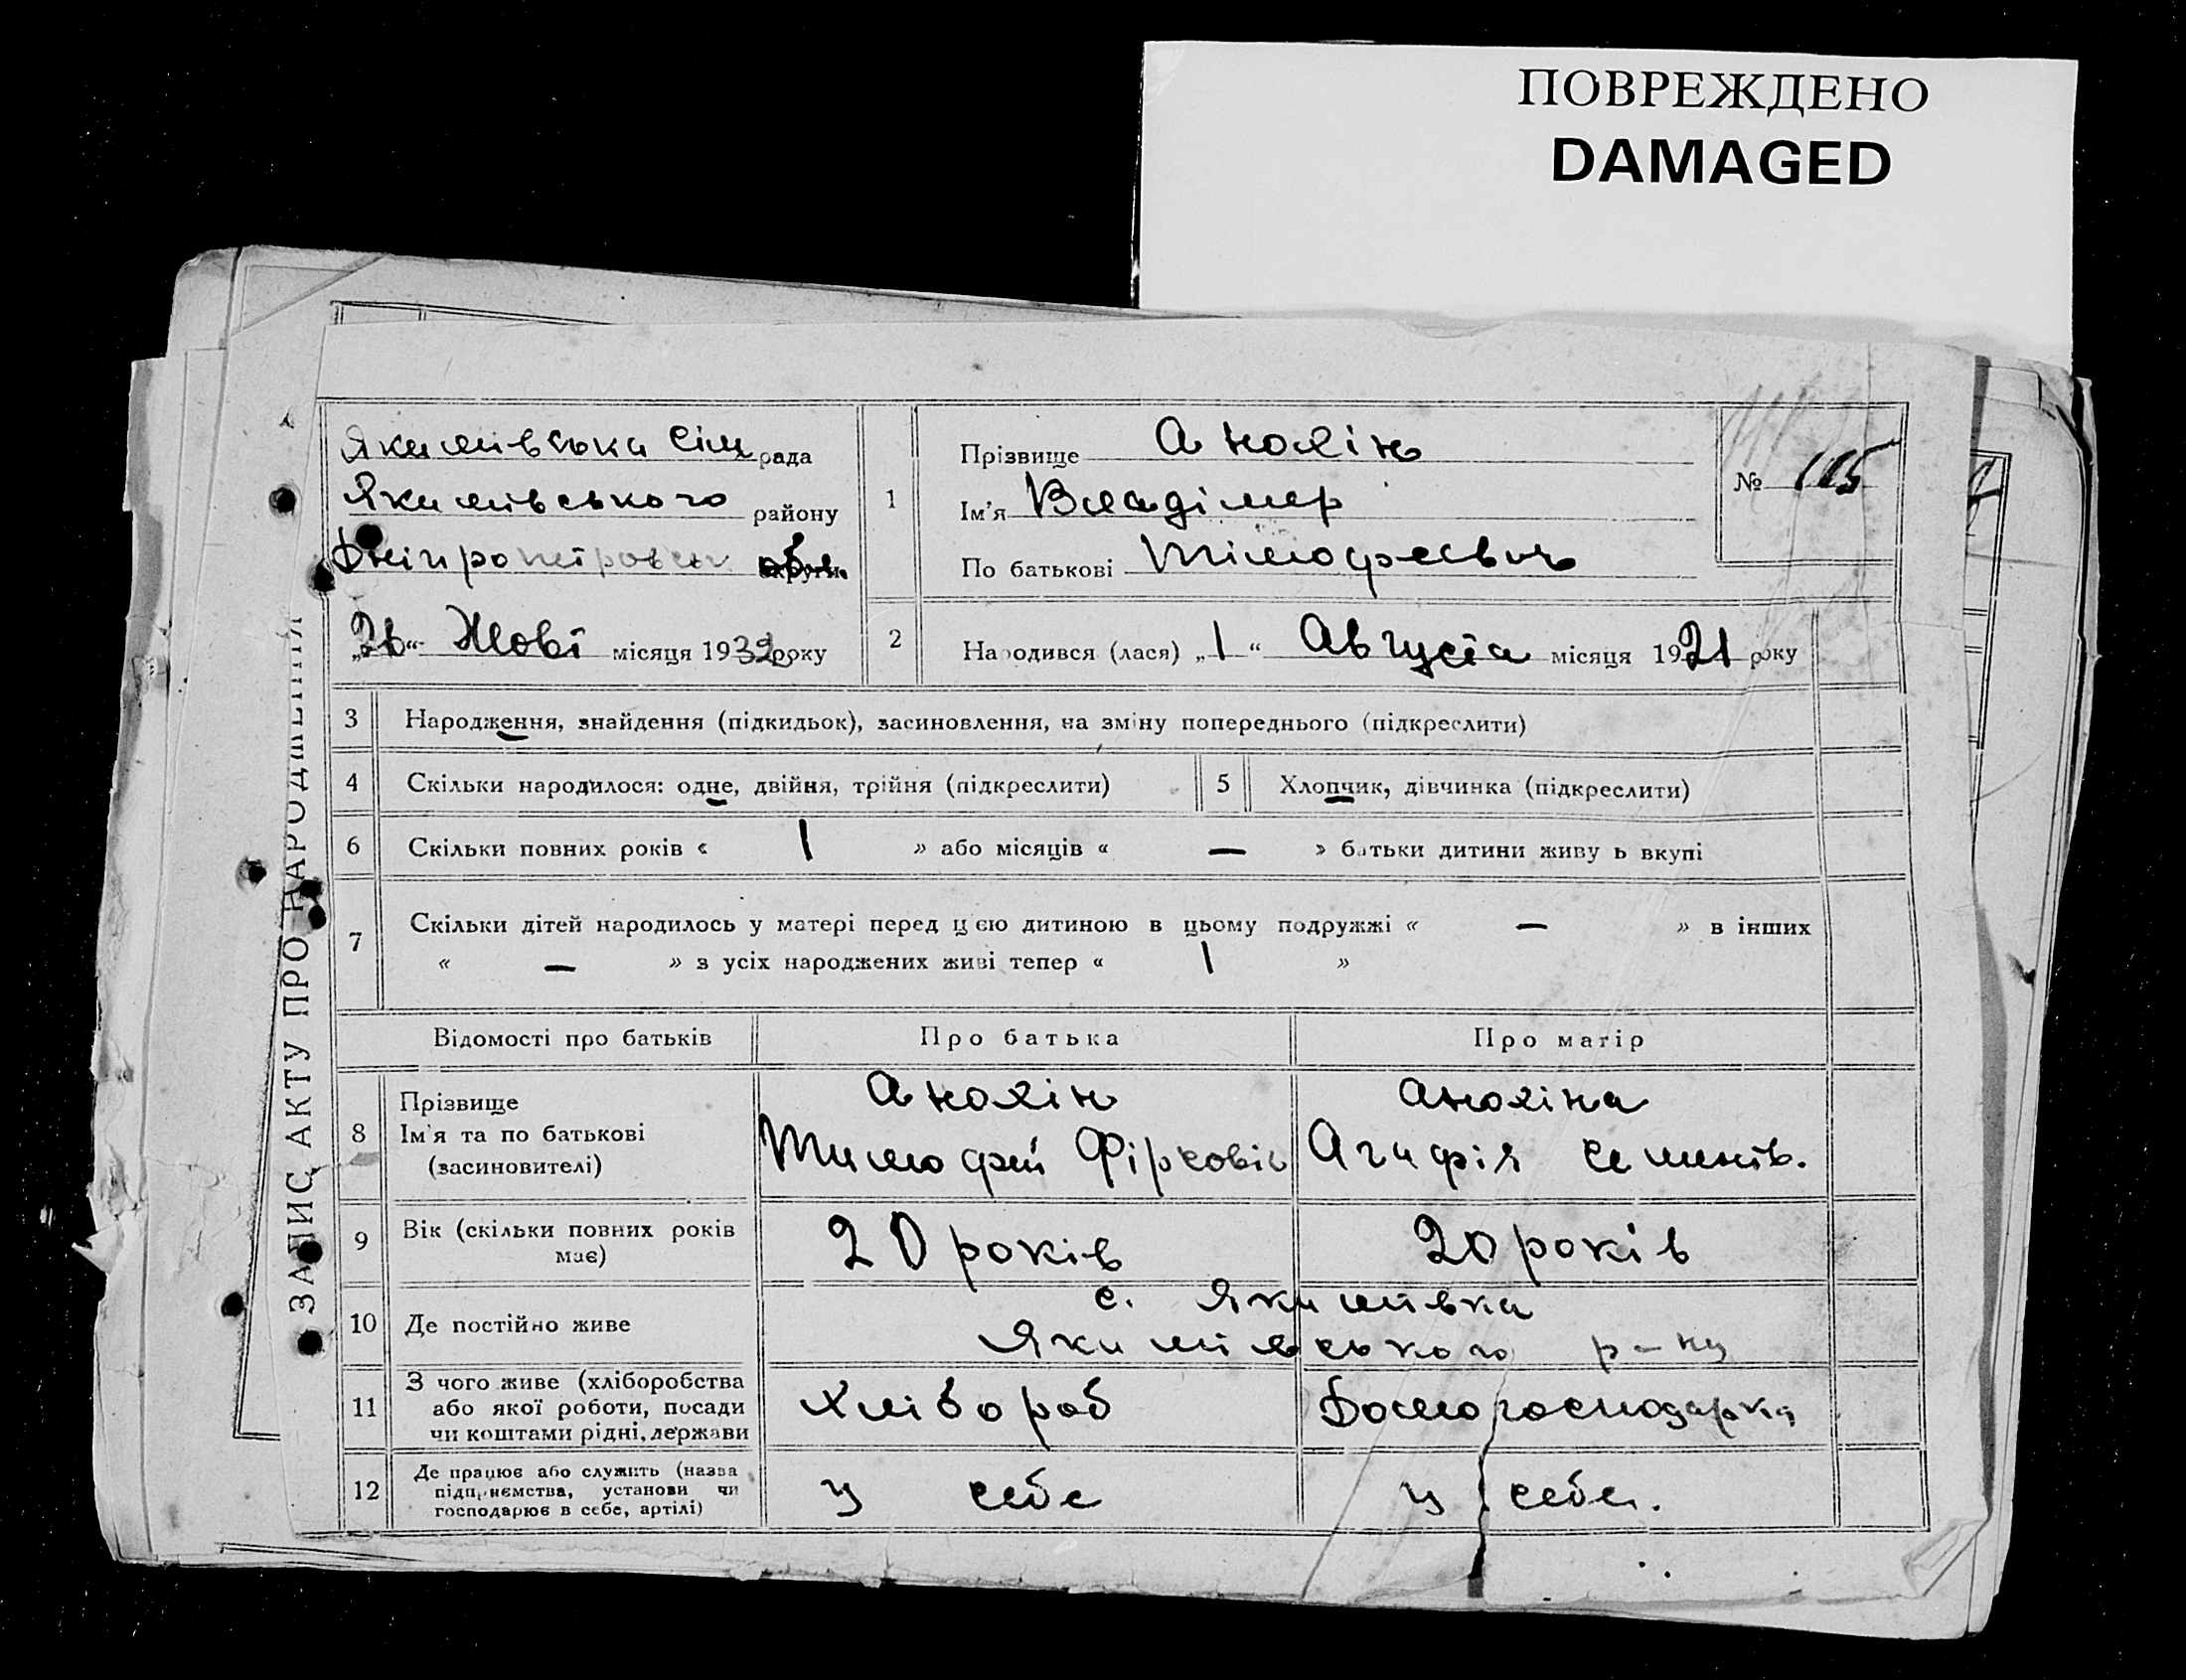 ПОВРЕЖДЕНО
DAMAGED
ЗАПИС АКТУ ПРО НАРОДЖЕННЯ
Якимівська сіл рада
Якимівського району
Дніпропетровськ обл.
„26“ Жовт місяця 1932 року
1
Прізвище Анохін
Ім'я Владімер
По батькові Тімофеевич
№ 115
2
Народився (лася) „1“ Августа місяця 1921 року
3 Народження, знайдення (підкидьок), засиновлення, на зміну попереднього (підкреслити)
4 Скільки народилося: одне, двійня, трійня (підкреслити)
5 Хлопчик, дівчинка (підкреслити)
6 Скільки повних років « 1 » або місяців « — » батьки дитини живуть вкупі
7 Скільки дітей народилось у матері перед цією дитиною в цьому подружжі « — » в інших
« — » з усіх народжених живі тепер « 1 »
Відомості про батьків Про батька Про матір
8 Прізвище
Ім'я та по батькові
(засиновителі)
Анохін
Тимофей
Анохіна
Агафія Семенів.
9 Вік (скільки повних років
має)
20 років
20 років
10 Де постійно живе
с. Якимівка
Якимівського р-ну
11 З чого живе (хліборобства
або якої роботи, посади
чи коштами рідні, держави
Хлібороб
Домогосподарка
12 Де працює або служить (назва
підприємства, установи чи
господарює в себе, артілі)
у себе
у себе.